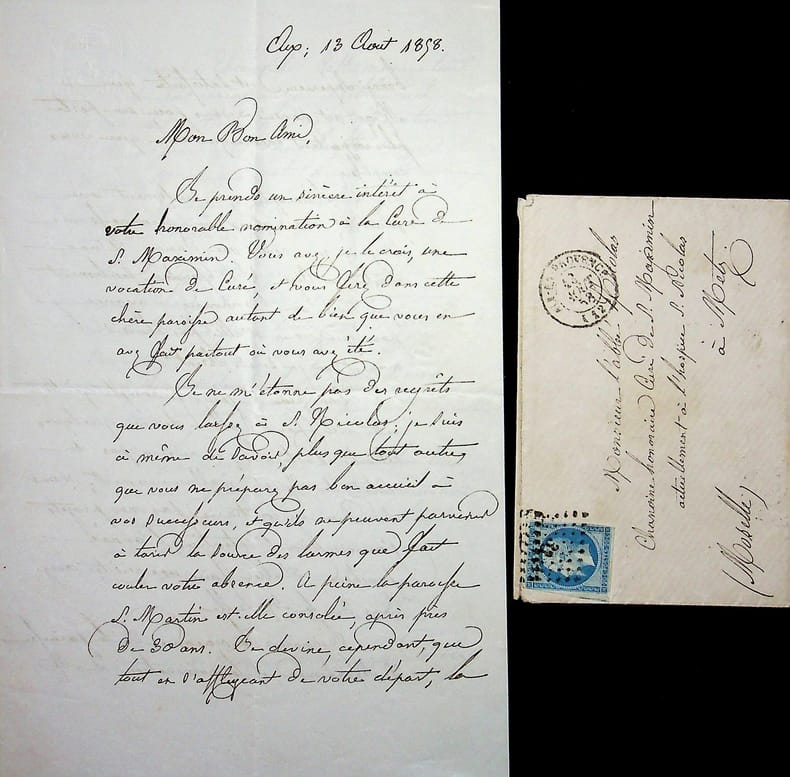 Aix, 13 Aout 1858.
Mon Bon Ami,
Je prends un sincère intérêt à
votre honorable nomination à la Cure de
S. Maximin. Vous avez, je le crois, une
vocation de Curé, et vous ferez dans cette
chère paroisse autant de bien que vous en
avez fait partout où vous avez été.
Je ne m'étonne pas des regrêts
que vous laissez à S. Nicolas; je suis
à même de savoir, plus que tout autre,
que vous ne préparez pas bon accueil à
vos successeurs, et qu'ils ne peuvent parvenir
à tarir la source des larmes que fait
couler votre absence. A peine la paroisse
S. Martin est-elle consolée, après près
de 30 ans. Je devine, cependant, que
tout en s'affligeant de votre départ, la
AIX-EN-PROVENCE
(12)
Monsieur l'abbé Nicolas
Chanoine honoraire Curé de S. Maximin
actuellement à l'hospice S. Nicolas
à Metz.
(Moselle)